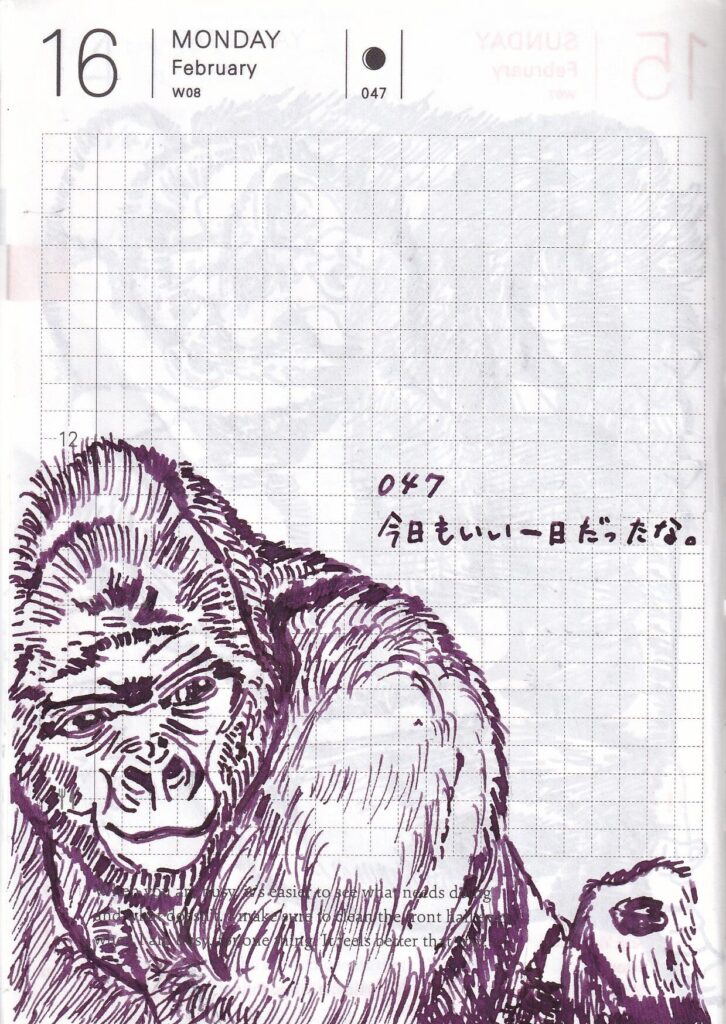 16
MONDAY
February
W08
047
12
047
今日もいい一日だったな。
you are busy, it's easier to see what needs doing
make sure to clean the front
one thing. It feels better that